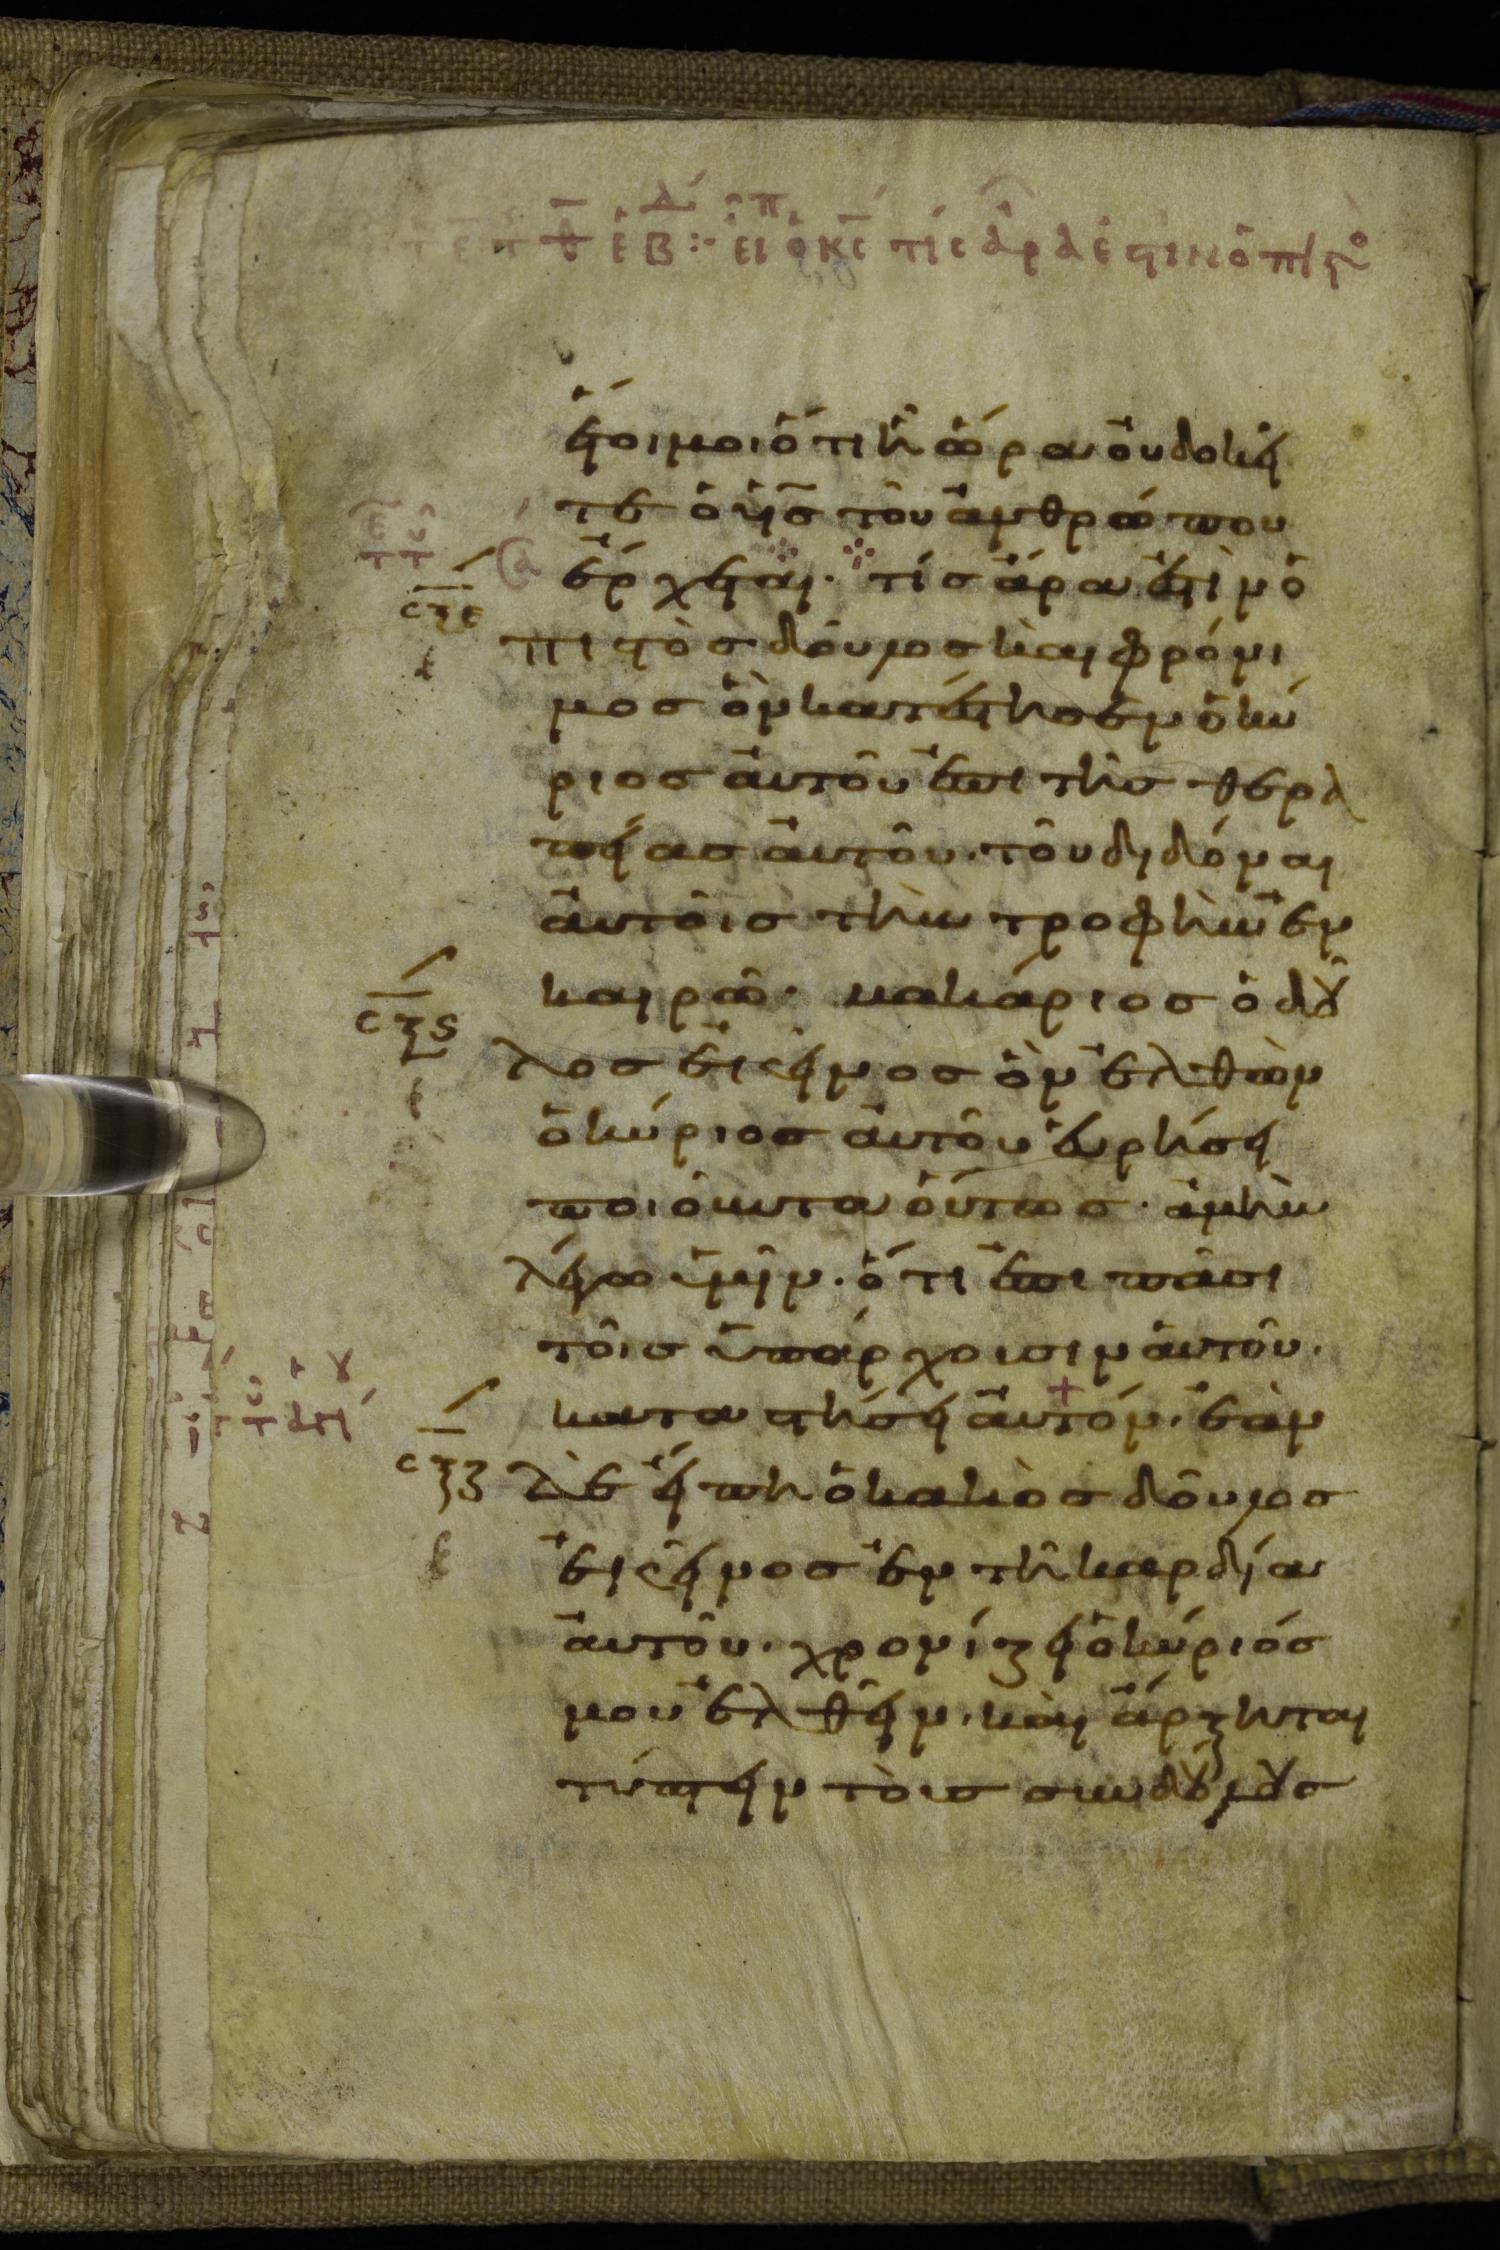 τῇ Β ΕΙ Ο ΚϹ τίς ἆρα ἐστὶν ὁ πιστὸ
ἕτοιμοι ὅτι ἧ ὥρα οὐ δοκεῖ
τε ὁ υἱὸσ τοῦ ἀνθρώπου
ἔρχεται· τίσ ἄρα ἐστὶν ὁ
ϲϟε
πιστὸσ δοῦλοσ καὶ φρόνι
μοσ ὃν κατέστησεν ὁ κύ
ριοσ αὐτοῦ ἐπι τῆσ θερα
πείασ αὐτοῦ· τοῦ διδόναι
αὐτοῖσ τὴν τροφὴν ἐν
καιρῶ· μακάριοσ ὁ δοῦ
ϲϟϛ
λοσ ἐκεῖνοσ ὃν ἐλθὼν
ὁ κύριοσ αὐτοῦ εὑρήσει
ποιοῦντα οὕτωσ· ἀμὴν
λέγω ὑμῖν· ὅτι ἐπι πᾶσι
τοῖσ ὑπάρχουσιν αὐτοῦ·
καταστήσει αὐτόν· ἐὰν
ϲϟζ
δὲ εἴπη ὁ κακὸσ δοῦλοσ
ἐκεῖνοσ ἐν τῆ καρδία
αὐτοῦ· χρονίζει ὁ κύριόσ
μου ἐλθεῖν· καὶ ἄρξηται
τύπτειν τοὺσ συνδούλουσ